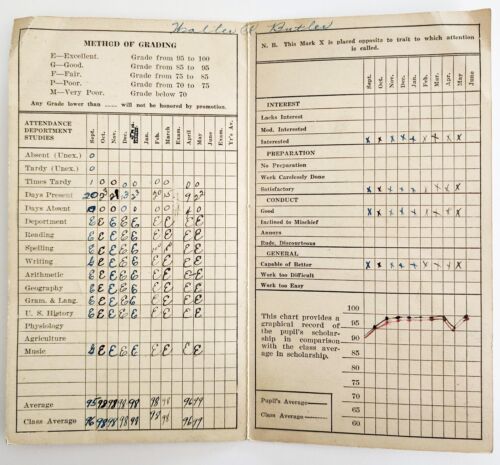 Walter Butler
METHOD OF GRADING
E—Excellent. Grade from 95 to 100
G—Good. Grade from 85 to 95
F—Fair. Grade from 75 to 85
P—Poor. Grade from 70 to 75
M—Very Poor. Grade below 70
Any Grade lower than will not be honored by promotion.
ATTENDANCE
DEPORTMENT
STUDIES
Sept. Oct. Nov. Dec. Jan. Feb. March Exam. April May June Exam. Yr's Av.
Absent (Unex.) 0
Tardy (Unex.) 0
Times Tardy
Days Present 20
Days Absent
Deportment E E E E E E E E E
Reading E E E E E E E E E
Spelling E E E E E E E E
Writing E E E E E E E E
Arithmetic E E E E E E E E E
Geography E E E E E E E E E
Gram. & Lang. E E E E E E E E E
U. S. History E E E E E E E E E
Physiology
Agriculture
Music E E E E E E E E
Average 95 98 98 98 98 98 98 96 97
Class Average 96 98 98 98 98 98 98 96 97
N. B. This Mark X is placed opposite to trait to which attention
is called.
Sept. Oct. Nov. Dec. Jan. Feb. Mar. Apr. May June
INTEREST
Lacks Interest
Mod. Interested
Interested x x x x x x x x x
PREPARATION
No Preparation
Work Carelessly Done
Satisfactory x x x x x x x x x
CONDUCT
Good x x x x x x x x x
Inclined to Mischief
Annoys
Rude, Discourteous
GENERAL
Capable of Better x x x x x x x x x
Work too Difficult
Work too Easy
This chart provides a
graphical record of
the pupil's scholar-
ship in comparison
with the class aver-
age in scholarship.
100
95
90
85
80
75
70
65
60
Pupil's Average
Class Average